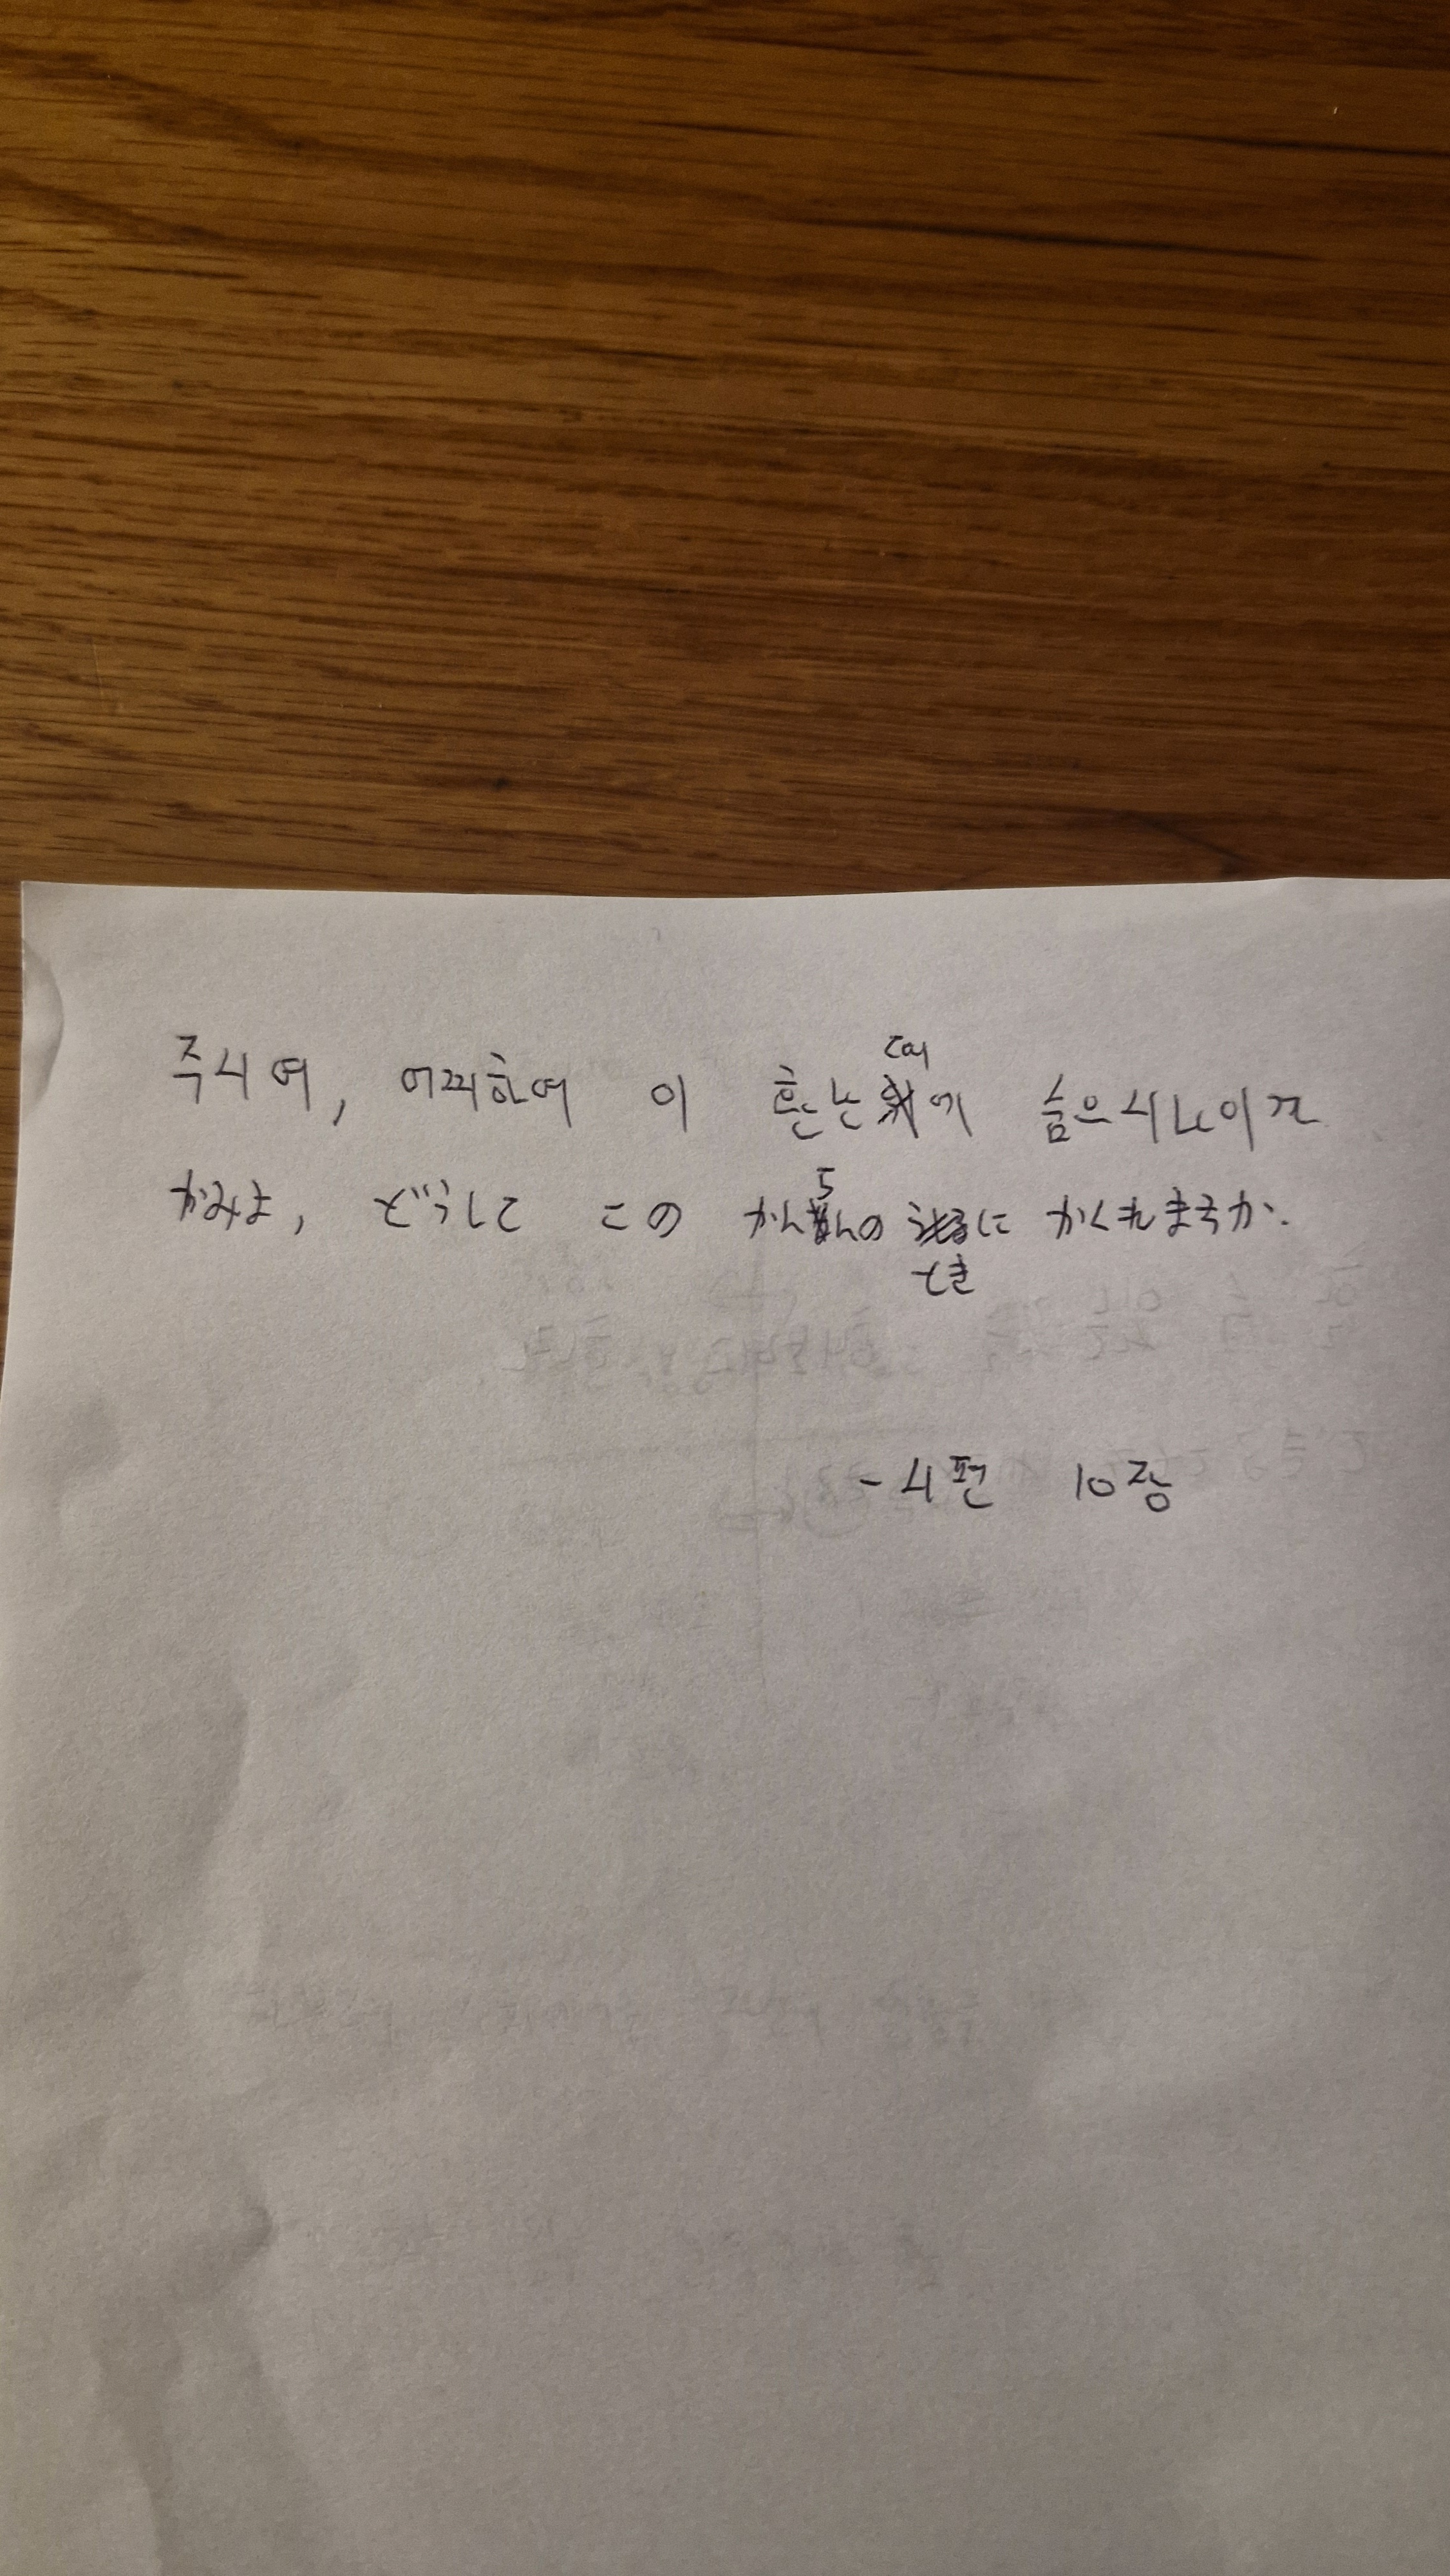 주시여, 어찌하여 이 환난때에 숨으시나이까
かみよ, どうして この かんらんの ときに かくれますか.
- 시편 10장